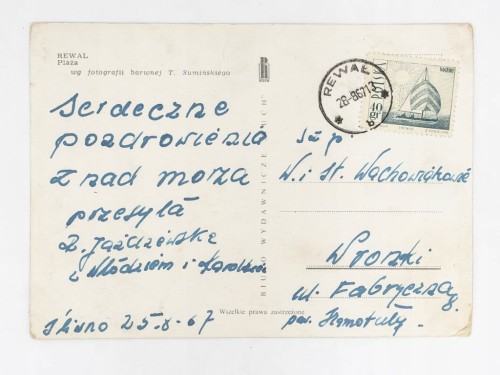 REWAL
Plaża
wg fotografii barwnej T. Sumińskiego
Serdeczne
pozdrowienia
z nad morza
przesyła
Z. Jażdżewska
z Włodziem i Karolkiem
25-8-67
BIURO WYDAWNICZE "RUCH"
Wszelkie prawa zastrzeżone
REWAL
28-8 67 17
POLSKA
10
gr
W. i St.
Wronki
ul. Fabryczna 8
pow. Szamotuły